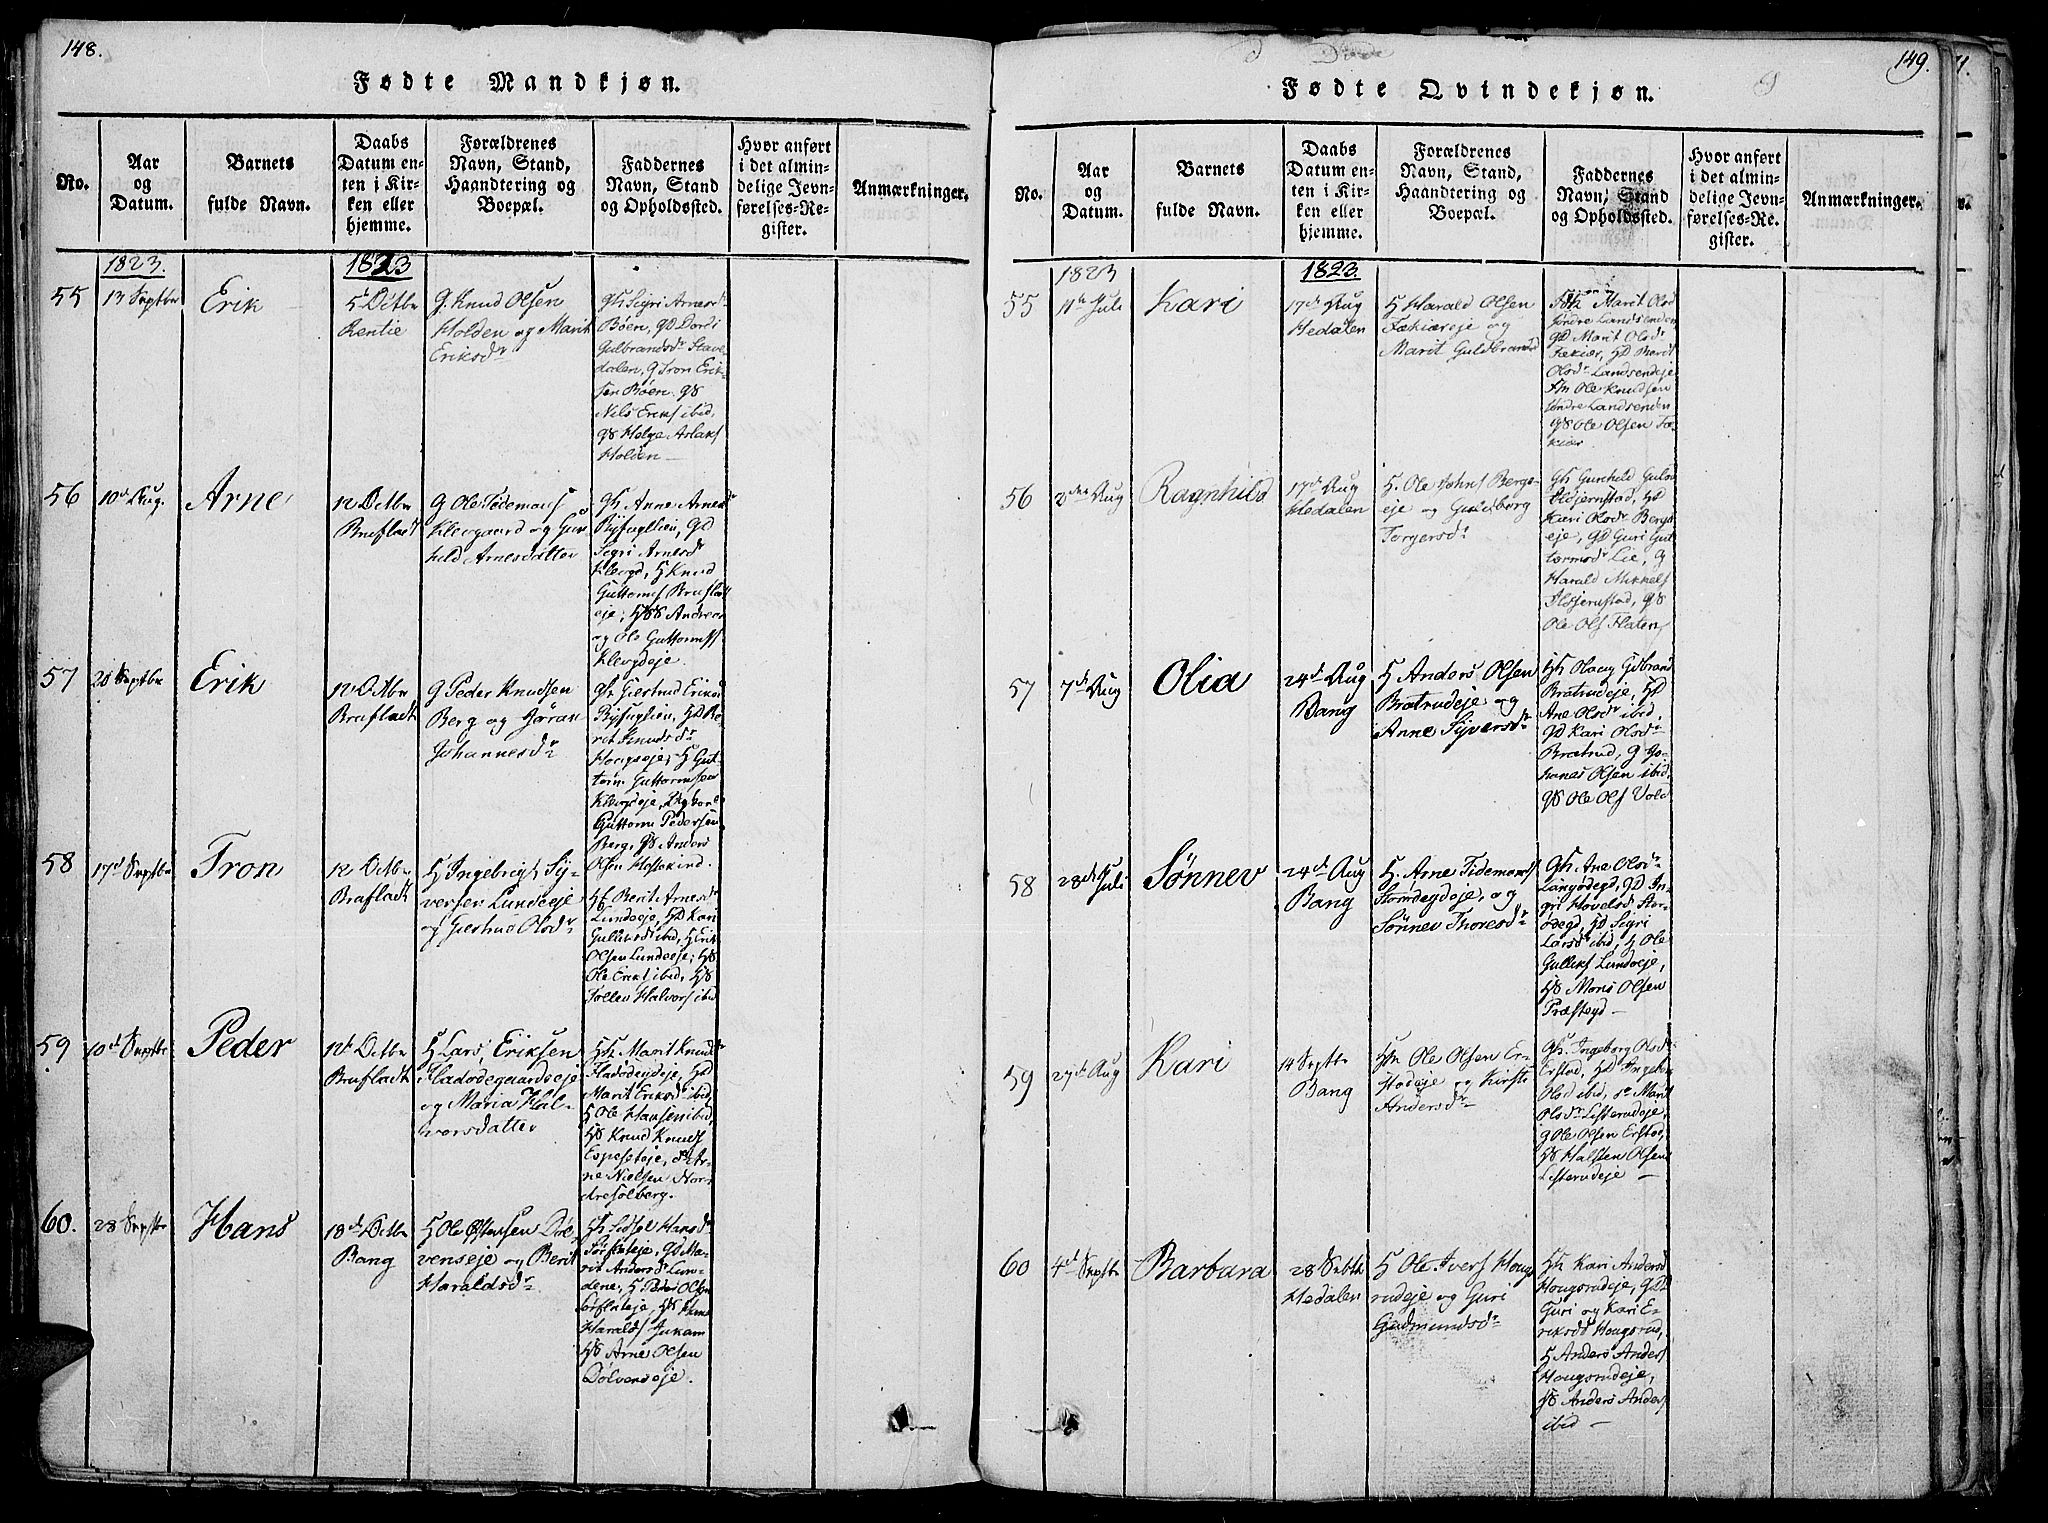 148.
Fødte Mandkjøn.
No.
Aar
og
Datum.
Barnets
fulde Navn.
Daabs
Datum en-
ten i Kir-
ken eller
hjemme.
Forældrenes
Navn, Stand,
Haandtering og
Boepæl.
Faddernes
Navn, Stand
og Opholdssted.
Hvor anført
i det almin-
delige Jevn-
førelses-Re-
gister.
Anmærkninger.
1823.
1823
55
13 Septbr
Erik
5t Octbr
Rentie
G. Knud Olsen
Holden og Marit
Eriksdr
Gh Sigri Arnesdr
Bøen, GD Dordi
Gulbrandsdr Stave-
dalen, G Tron Erik-
sen Bøen. GS
Nils Eriks ibid,
GS Helge Aslaks
Holden —
56
10d Aug.
Arne
12 Octbr
Brufladt
G Ole Tidemans
Klevgaard og Gun
hild Arnesdatter
Gh Anne Arnesdr
Ryfuglien, GD
Sigri Arnesdr
Klevgd, H Knud
Guttorms Bruflat
eje, HSS Andreas
og Ole Guttorms
Klevgdeje.
57
20 Septbr
Erik
12 Octbr
Brufladt
G Peder Knudsen
Berg og Jøran
Johannesdr
Gh Giertrud Eriksd
Ryfuglien, HD Be-
rit Knudsdr
Hougseje, H Gut-
torm Guttormsen
Klevgdeje,
Guttorm Pedersen
Berg, GS Anders
Olsen
58
17d Septbr
Tron
12 Octbr
Brufladt
H Ingebrigt Sy-
versen Lundeeje
og Giertrud Olsdr
HK Berit Arnesdr
Lundeeje, HD Kari
Gulliksdr ibid, H Erik
Olsen Lundeeje, HS
Ole Eriks ibid, HS
Tollev Halvors ibid
59
10d Septbr
Peder
12t Octbr
Brufladt
H Lars Eriksen
Fladødegaardseje
og Maria Hal-
vorsdatter
HK Marit Knudsdr
Fladødeje, HD
Marit Eriksdr ibid,
H Ole Hansen ibid,
HS Knud Knuds
Espeseteje, Ar-
ne Nielsen Nor-
dresolberg.
60.
28 Septbr
Hans
18d Octbr
Bang
H Ole Østensen Døl-
venseje og Berit
Haraldsdr
HK Sidsel Hansdr
Sørflateje, GD Ma-
rit Andersdr Lun-
dene, H Peder Olsen
Sørflateje, HS
Haralds Jukam
HS Arne Olsen
Dølvenseje.
149.
Fødte Qvindekjøn.
No.
Aar
og
Datum.
Barnets
fulde Navn.
Daabs
Datum en-
ten i Kir-
ken eller
hjemme.
Forældrenes
Navn, Stand,
Haandtering og
Boepæl.
Faddernes
Navn, Stand
og Opholdssted.
Hvor anført
i det almin-
delige Jevn-
førelses-Re-
gister.
Anmærkninger.
1823
1823.
55
11te Juli
Kari
17de Aug
Hedalen
H Harald Olsen
Fækiæreje og
Marit Guldbrandsd
Marit Olsd
søndre Landsenden
GD Marit Olsdr
Fækiær, HD Berit
Olsdr Landsendeje
Ole Knudsen
søndre Landsenden
GS Ole Olsen Fæ-
kiær
56
Aug
Ragnhild
17de Aug
Hedalen
H. Ole Johns Bergs-
eje og Guldborg
Torgersdr
Gh Gunhild Gulsd
Kari Olsdr Bergs
eje, GD Guri Gut
tormsdr Lie, G
Harald Mikkels
GS
Ole Ols Flaten
57
7de Aug
Olia
24de Aug
Bang
H Anders Olsen
Bratrudeje og
Anne Syversdr
HK Olaug Gulbrand
Bratrudeje, HD
Ane Olsdr ibid,
GD Kari Olsdr
Bratrud, G Jo-
hannes Olsen ibid,
GS Ole Ols Vold
58
28de Juli
Sønnev
24de Aug
Bang
H. Arne Tidemans
Stordegdeje, og
Sønnev Thoresdr
Gh. Ane Olsdr
Langødegd, GD In-
gri Hovelsd Stor-
ødegd, HD Sigri
Larsdr ibid, H Ole
Gulliks Lundeeje,
HS Mons Olsen
Præstegd —
59
27de Aug
Kari
14 Septbr
Bang
Ole Olsen Er-
stadeje og Kirsti
Andersdr
Gh. Ingeborg Olsdr
Erstad, HD Ingeborg
Olsd ibid, Marit
Olsdr Listerudeje,
G Ole Olsen Erstad,
HS Halsten Olsen
Listerudeje —
60
4d Septbr
Barbara
28 Sebtb
Hedalen
H Ole Ivers Hougs
rudeje og Guri
Gudmundsdr
HK Kari Andersd
Hougsrudeje, GDD
Guri og Kari E-
riksdr Hougsrud,
H Anders Anders
Hougsrudeje,
HS Anders Anders
ibid —